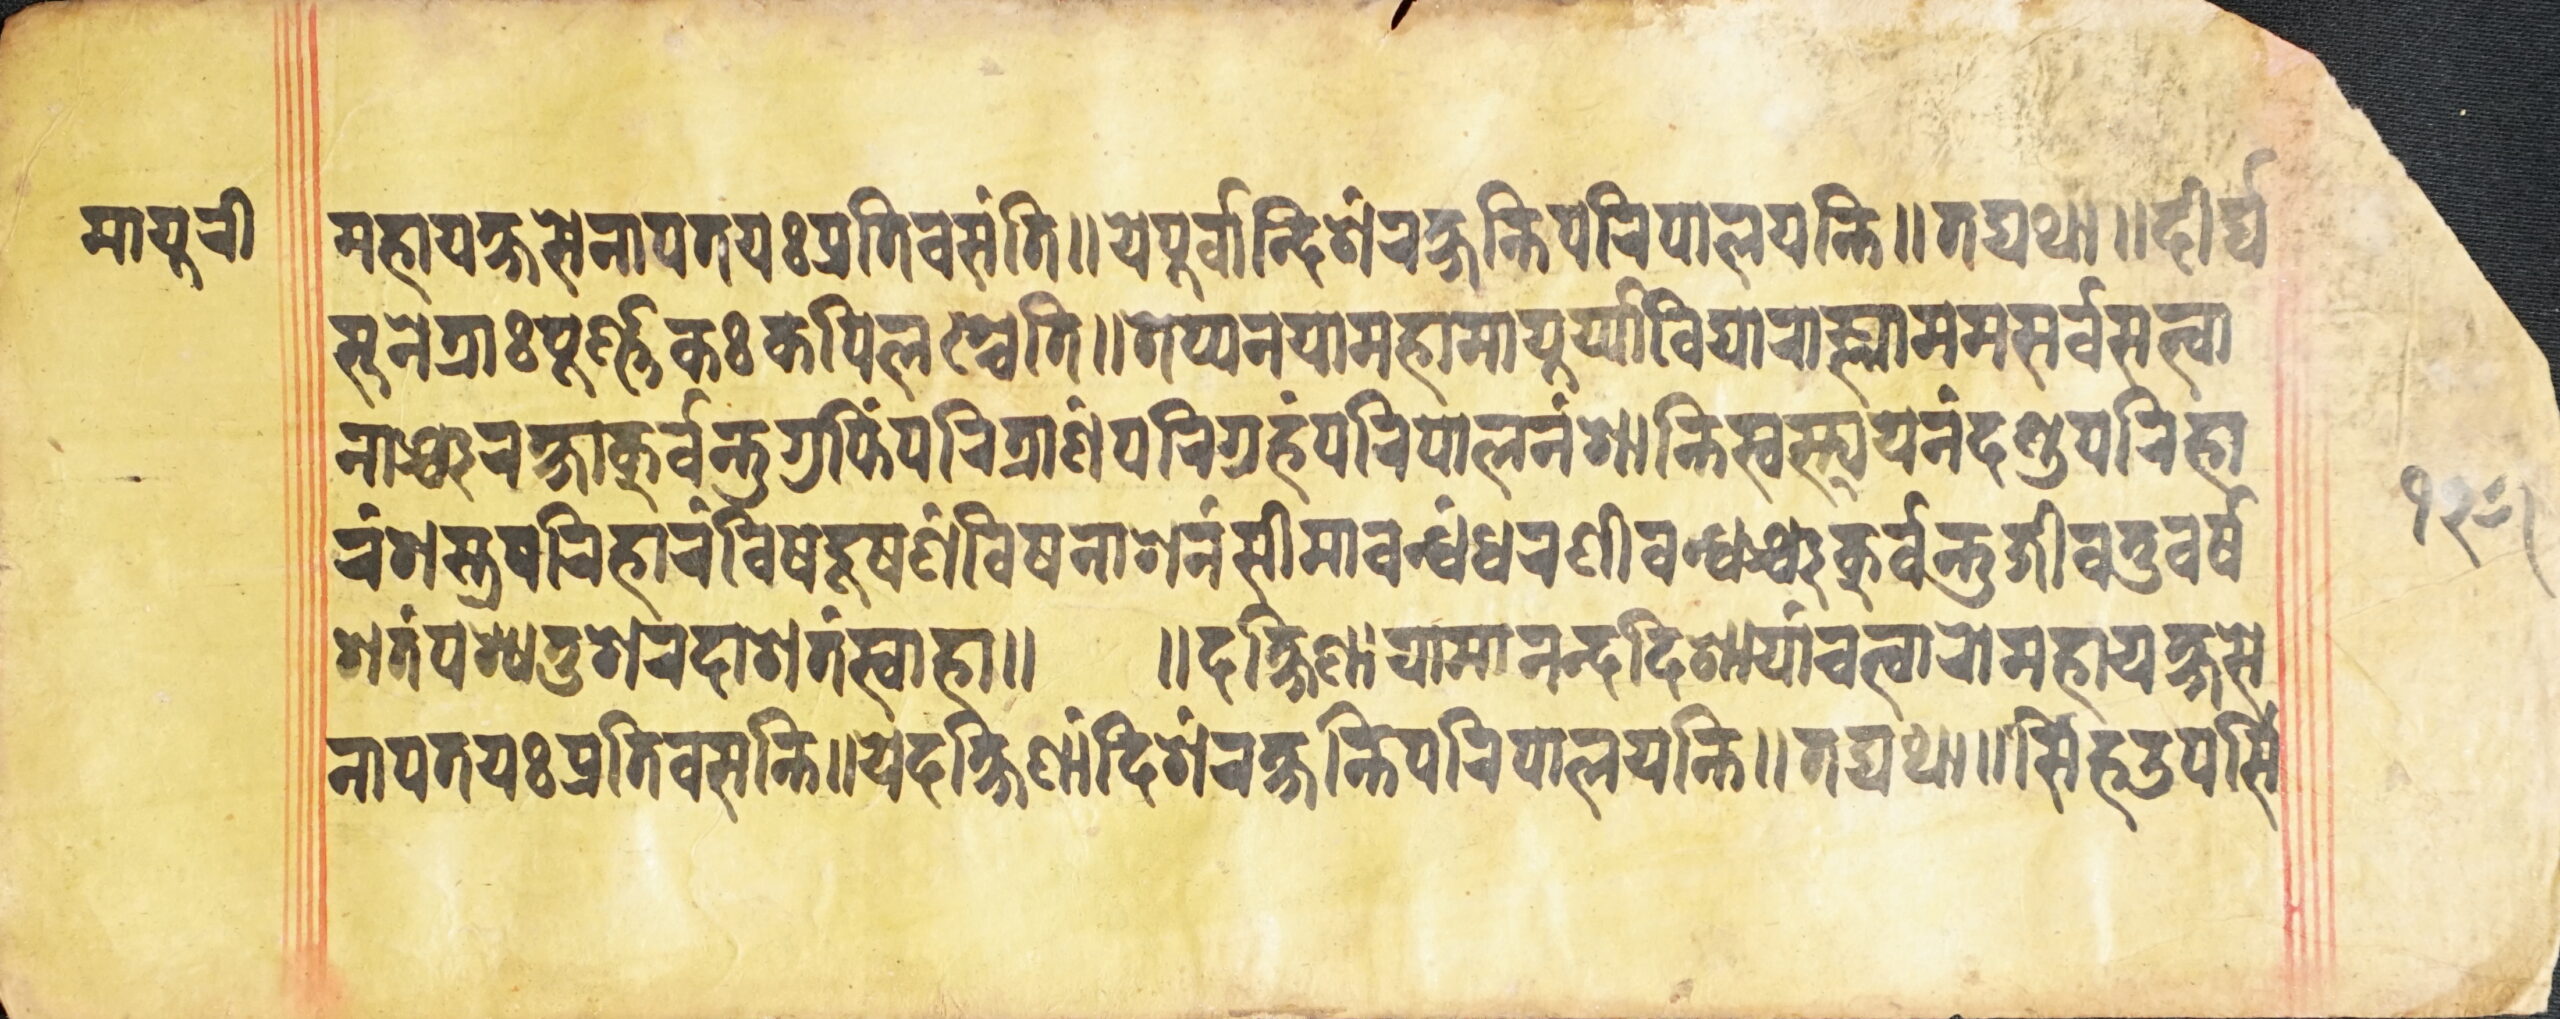 मायुरी
महायक्षसेनापतयः प्रतिवसंति॥ येपूर्वान्दिशंरक्षन्तिपरिपालयन्ति॥ तद्यथा॥ दीर्घ
सुनेत्राः पूर्ण्णकः कपिलश्चेति॥ तेप्यनयामहामायूर्य्याविद्याराज्ञाममसर्वसत्वा
नाञ्चरक्षाकुर्वन्तुगुप्तिंपरित्राणंपरिग्रहंपरिपालनंशान्तिस्वस्त्ययनंदण्डपरिहा
रंशस्त्रपरिहारंविषदूषणंविषनाशनंसीमावन्धंधरणीवन्धञ्चकुर्वन्तुजीवतुवर्ष
शतंपश्यतुशरदाशतंस्वाहा॥ ॥ दक्षिणायामानन्ददिशायांचत्वारोमहायक्षसे
नापतयः प्रतिवसन्ति॥ येदक्षिणांदिशंरक्षन्तिपरिपालयन्ति॥ तद्यथा॥ सिंहउपसिं